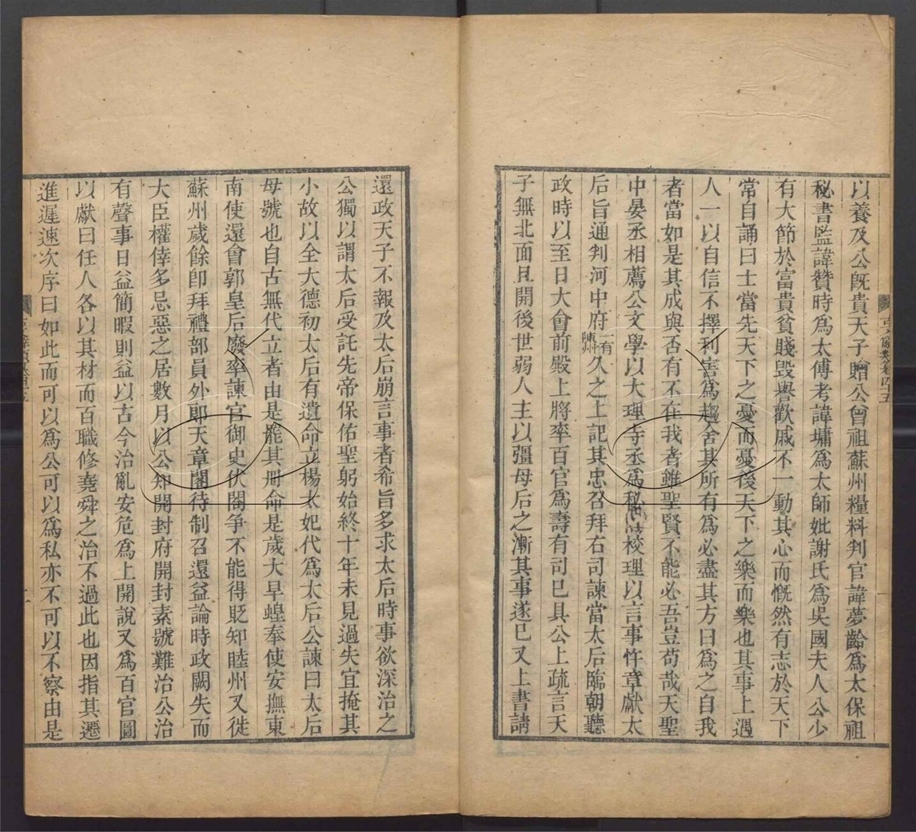 以養及公既貴天子贈公曾祖蘇州糧料判官諱夢齡為太保祖
秘書監諱贊時為太傅考諱墉為太師妣謝氏為吳國夫人公少
有大節於富貴貧賤毀譽歡戚不一動其心而慨然有志於天下
常自誦曰士當先天下之憂而憂後天下之樂而樂也其事上遇
人一以自信不擇利害為趨舍其所有為必盡其方曰為之自我
者當如是其成與否有不在我者雖聖賢不能必吾豈苟哉天聖
中晏丞相薦公文學以大理寺丞為秘閣校理以言事忤章獻太
后旨通判河中府一有陳州久之上記其忠召拜右司諫當太后臨朝聽
政時以至日大會前殿上將率百官為壽有司已具公上疏言天
子無北面且開後世弱人主以彊母后之漸其事遂已又上書請
還政天子不報及太后崩言事者希旨多求太后時事欲深治之
公獨以謂太后受託先帝保佑聖躬始終十年未見過失宜掩其
小故以全大德初太后有遺命立楊太妃代為太后公諫曰太后
母號也自古無代立者由是罷其冊命是歲大旱蝗奉使安撫東
南使還會郭皇后廢率諫官御史伏閤爭不能得貶知睦州又徙
蘇州歲餘即拜禮部員外郎天章閣待制召還益論時政闕失而
大臣權倖多忌惡之居數月以公知開封府開封素號難治公治
有聲事日益簡暇則益以古今治亂安危為上開說又為百官圖
以獻曰任人各以其材而百職修堯舜之治不過此也因指其遷
進遲速次序曰如此而可以為公可以為私亦不可以不察由是